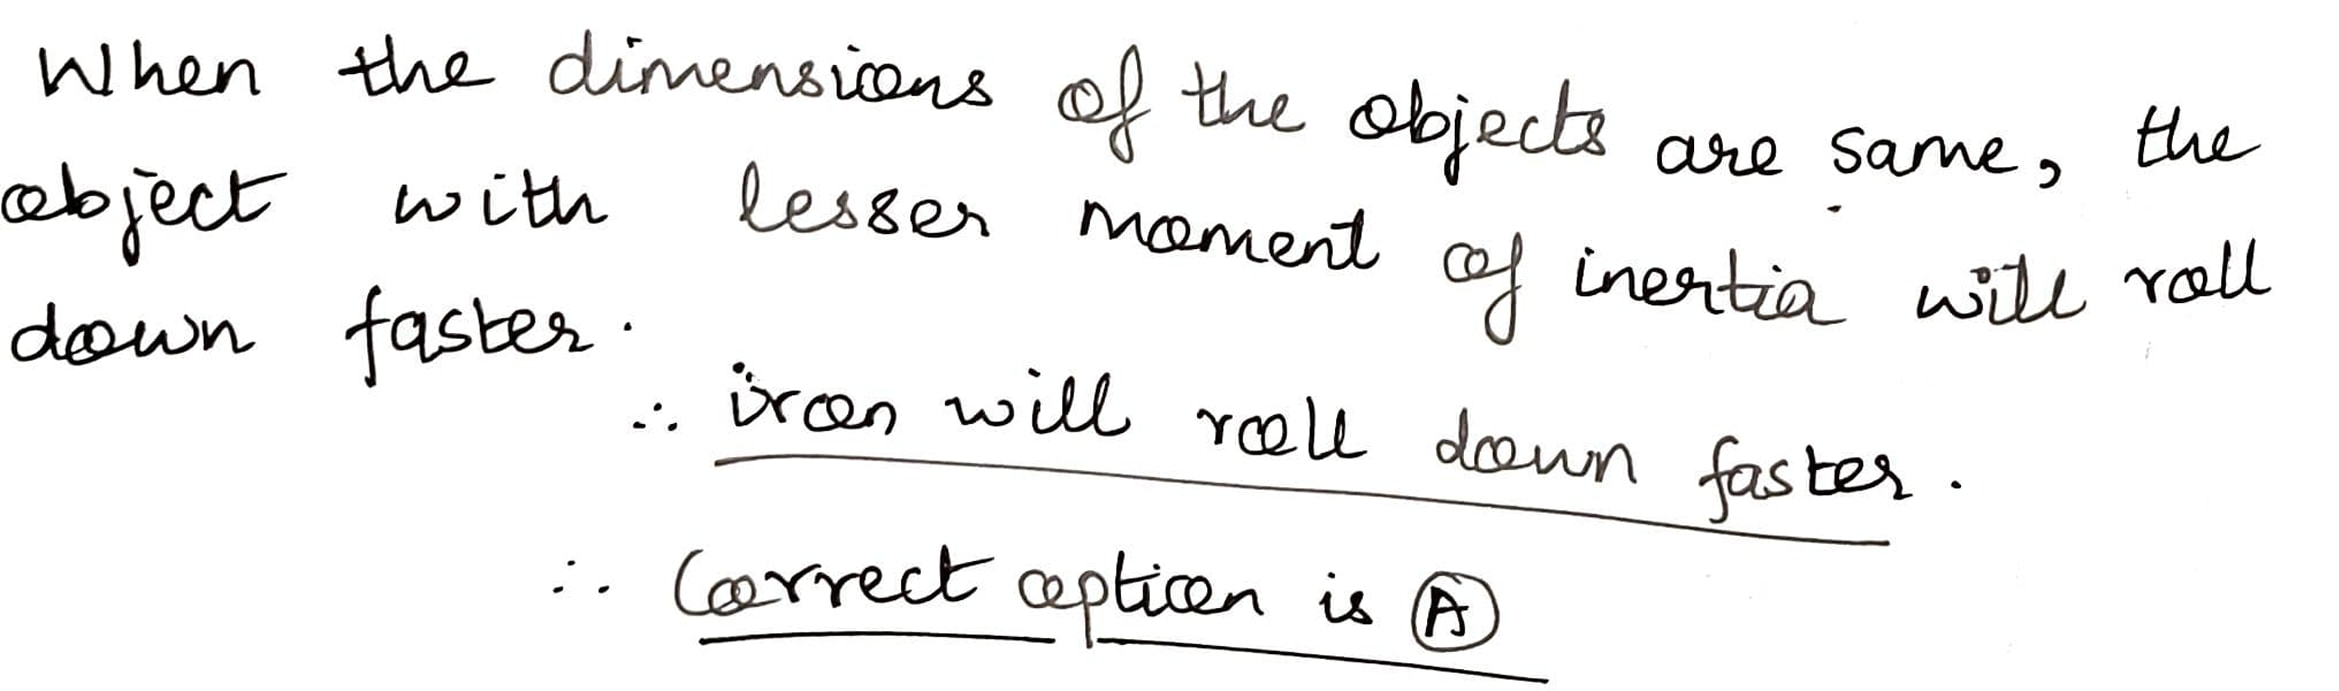 When the dimensions of the objects are same, the
object with lesser moment of inertia will roll
down faster.
∴ iron will roll down faster.
∴ Correct option is Ⓐ